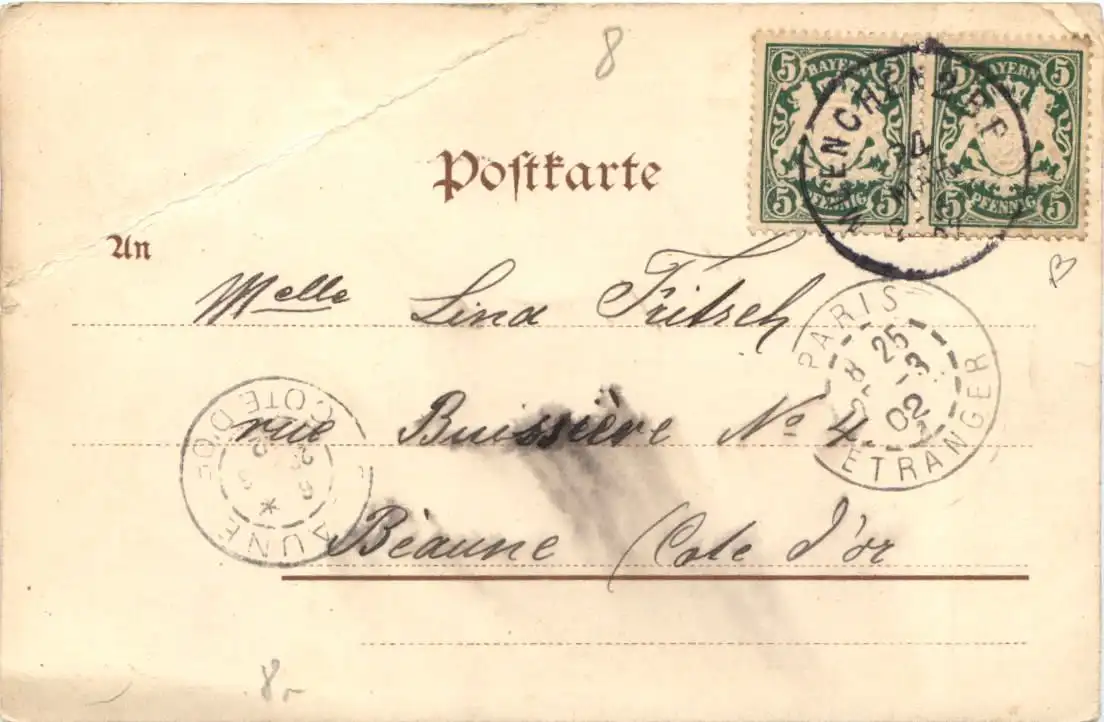 8
5 BAYERN 5
5 PFENNIG 5
5 BAYERN 5
5 PFENNIG 5
MUENCHEN 2 B.P.
24
MAR
Postkarte
An
Melle Lina Fritsch
PARIS
25
-3
02
ETRANGER
rue Buissière No 4.
COTE D'OR
Béaune (Cote d'or
8